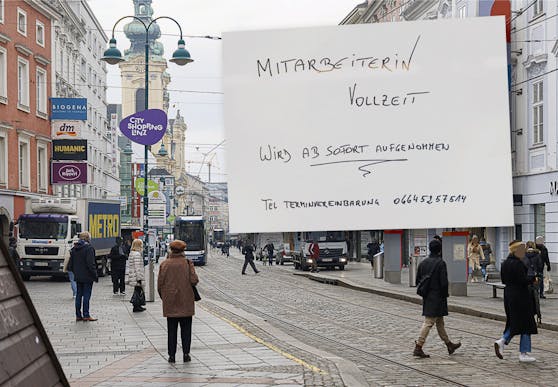 MITARBEITERIN
VOLLZEIT
WIRD AB SOFORT AUFGENOMMEN
TEL TERMINVEREINBARUNG 06645257514
BIOGENA
dm
HUMANIC
CITY
SHOPPING
LINZ
METRO